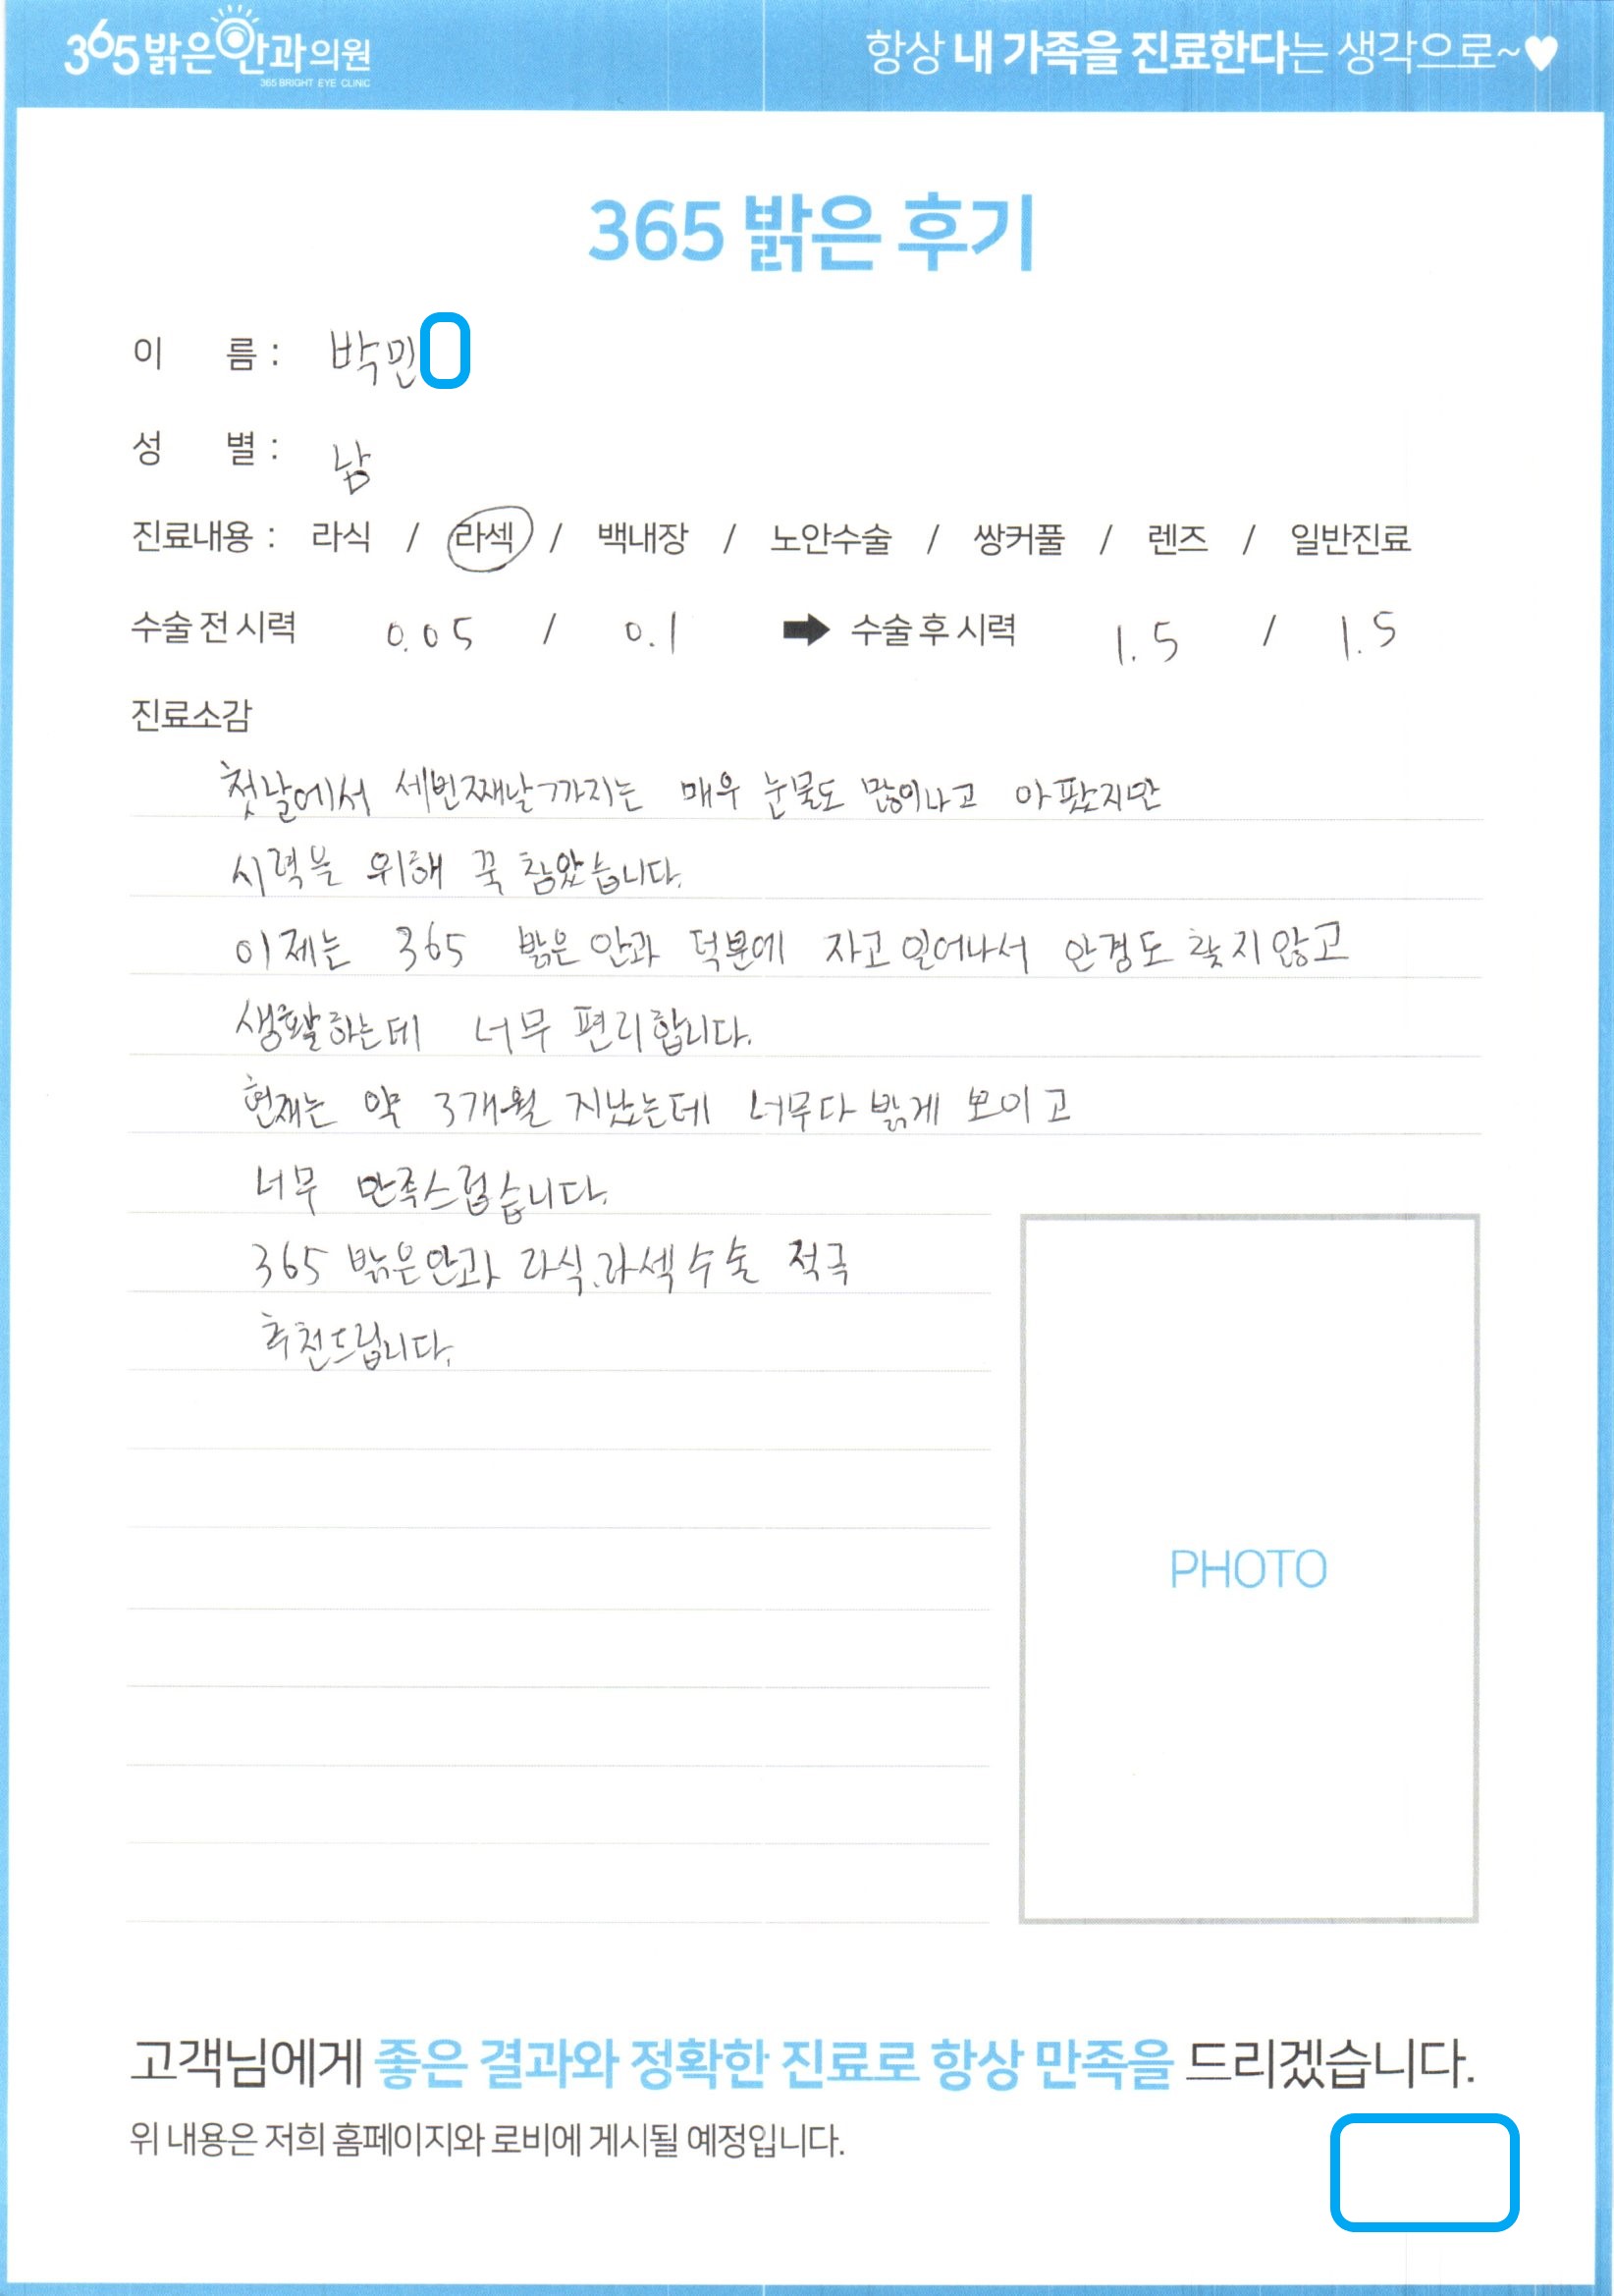 365 밝은안과의원 항상 내 가족을 진료한다는 생각으로~♥
365 BRIGHT EYE CLINIC
365 밝은 후기
이 름 : 박민
성 별 : 남
진료내용 : 라식 / 라섹 / 백내장 / 노안수술 / 쌍커풀 / 렌즈 / 일반진료
수술 전 시력 0.05 / 0.1 ➡ 수술 후 시력 1.5 / 1.5
진료소감
첫날에서 세번째날까지는 매우 눈물도 많이나고 아팠지만
시력을 위해 꾹 참았습니다.
이제는 365 밝은 안과 덕분에 자고 일어나서 안경도 찾지 않고
생활하는데 너무 편리합니다.
현재는 약 3개월 지났는데 너무다 밝게 보이고
너무 만족스럽습니다.
365 밝은안과 라식.라섹수술 적극
추천드립니다.
PHOTO
고객님에게 좋은 결과와 정확한 진료로 항상 만족을 드리겠습니다.
위 내용은 저희 홈페이지와 로비에 게시될 예정입니다.